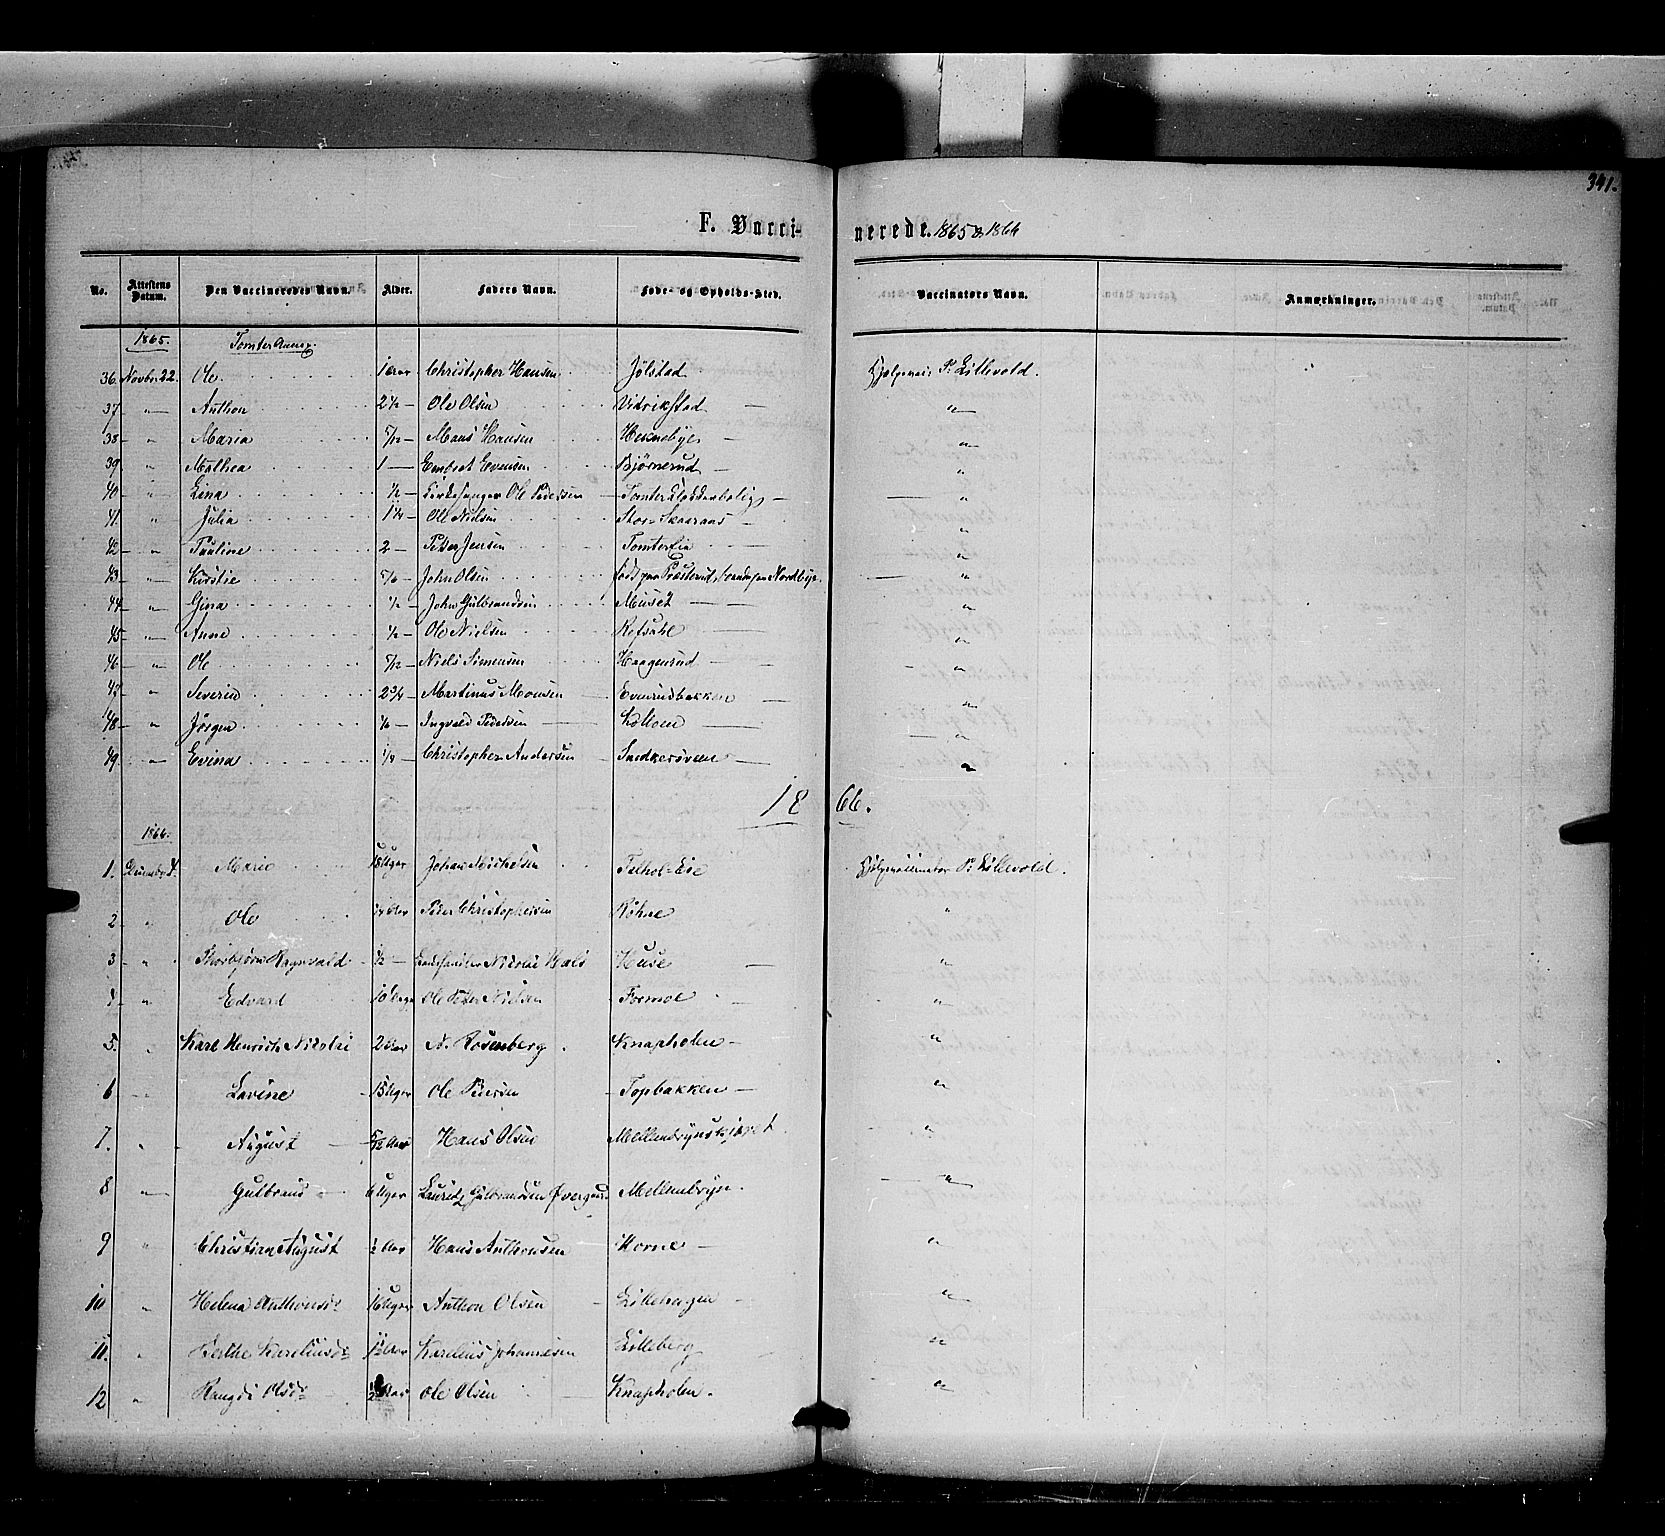 341.
F. Vaccinerede. 1865 & 1866
No. Attestens Datum. Den Vaccineredes Navn. Alder. Faders Navn. Føde- og Opholds-Sted. Vaccinators Navn. Anmærkninger.
1865. Tomter Annex.
36. Novbr. 22. Ole 1 Aar Christopher Hansen Jølstad P. Lillevold.
37 " Anthon 2 1/2 Ole Olsen Vidrikstad "
38 " Maria 5/12 Hansen "
39 " Mathea 1 Embret Evensen Bjørnerud "
40 " Lina 1/2 Kirkesanger Ole Pedersen Tomter Klokkerbolig "
41. " Julia 1 1/4 Ole Nielsen Stor-Skaaraas "
42 " Pauline 2 Peder Jensen Tomter Eie "
43 " Kirstie 5/6 John Olsen født paa Præsterud, Nordbye. "
44 " Gina 1/2 John Gulbrandsen Muset "
45 " Anne 1/2 Ole Nielsen Refsahl "
46 " Ole 5/12 Niels Simensen Haagenrud "
47 " Severin 2 3/4 Martinus Monsen Evenrudbakken "
48 " Jørgen Ingvald Pedersen "
49 " Evina Christopher Andersen "
1866.
1866.
1. Marie 18 Uger Johan Michelsen P. Lillevold.
2 " Ole Aar Peder Christophersen Røhne "
3 " Thorbjørn Ragnvald 1/2 Landhandler Nicolai Huse "
4 " Edvard 10 Uger Ole Peter Nielsen Formoe "
5. " Karl Henrich Nicolai 2 Aar N. Rosenberg Knapholen "
6 " Lavine 15 Uger Ole Pedersen Topbakken "
7. " August 5/12 Aar Hans Olsen "
8 " Gulbrand 6 Uger Lauritz Gulbrandsen Mellembryn "
9 " Christian August 1/2 Aar Hans Anthonsen Horne "
10 " Helena Anthonsd: 16 Uger Anthon Olsen Lillebergen "
11. " Berthe Kareliusd: 1 1/2 Aar Karelius Johannesen Lilleberg "
12 " Rangdi Olsd: Ole Olsen Knapholen. "